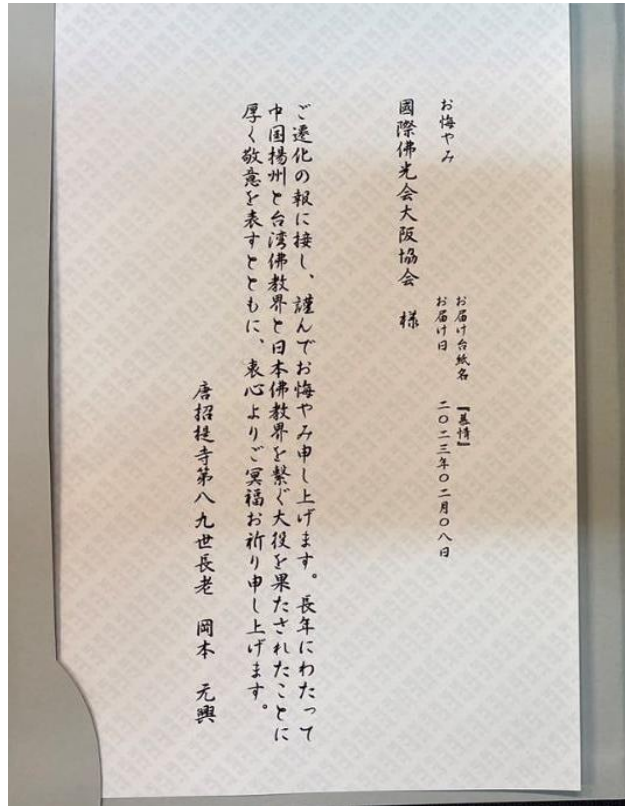 お届け台紙名　『慕情』
お悔やみ　お届け日　二〇二三年〇二月〇八日
國際佛光会大阪協会　様
ご遷化の報に接し、謹んでお悔やみ申し上げます。長年にわたって
中国揚州と台湾佛教界と日本佛教界を繋ぐ大役を果たされたことに
厚く敬意を表すとともに、衷心よりご冥福お祈り申し上げます。
唐招提寺第八九世長老　岡本　元興